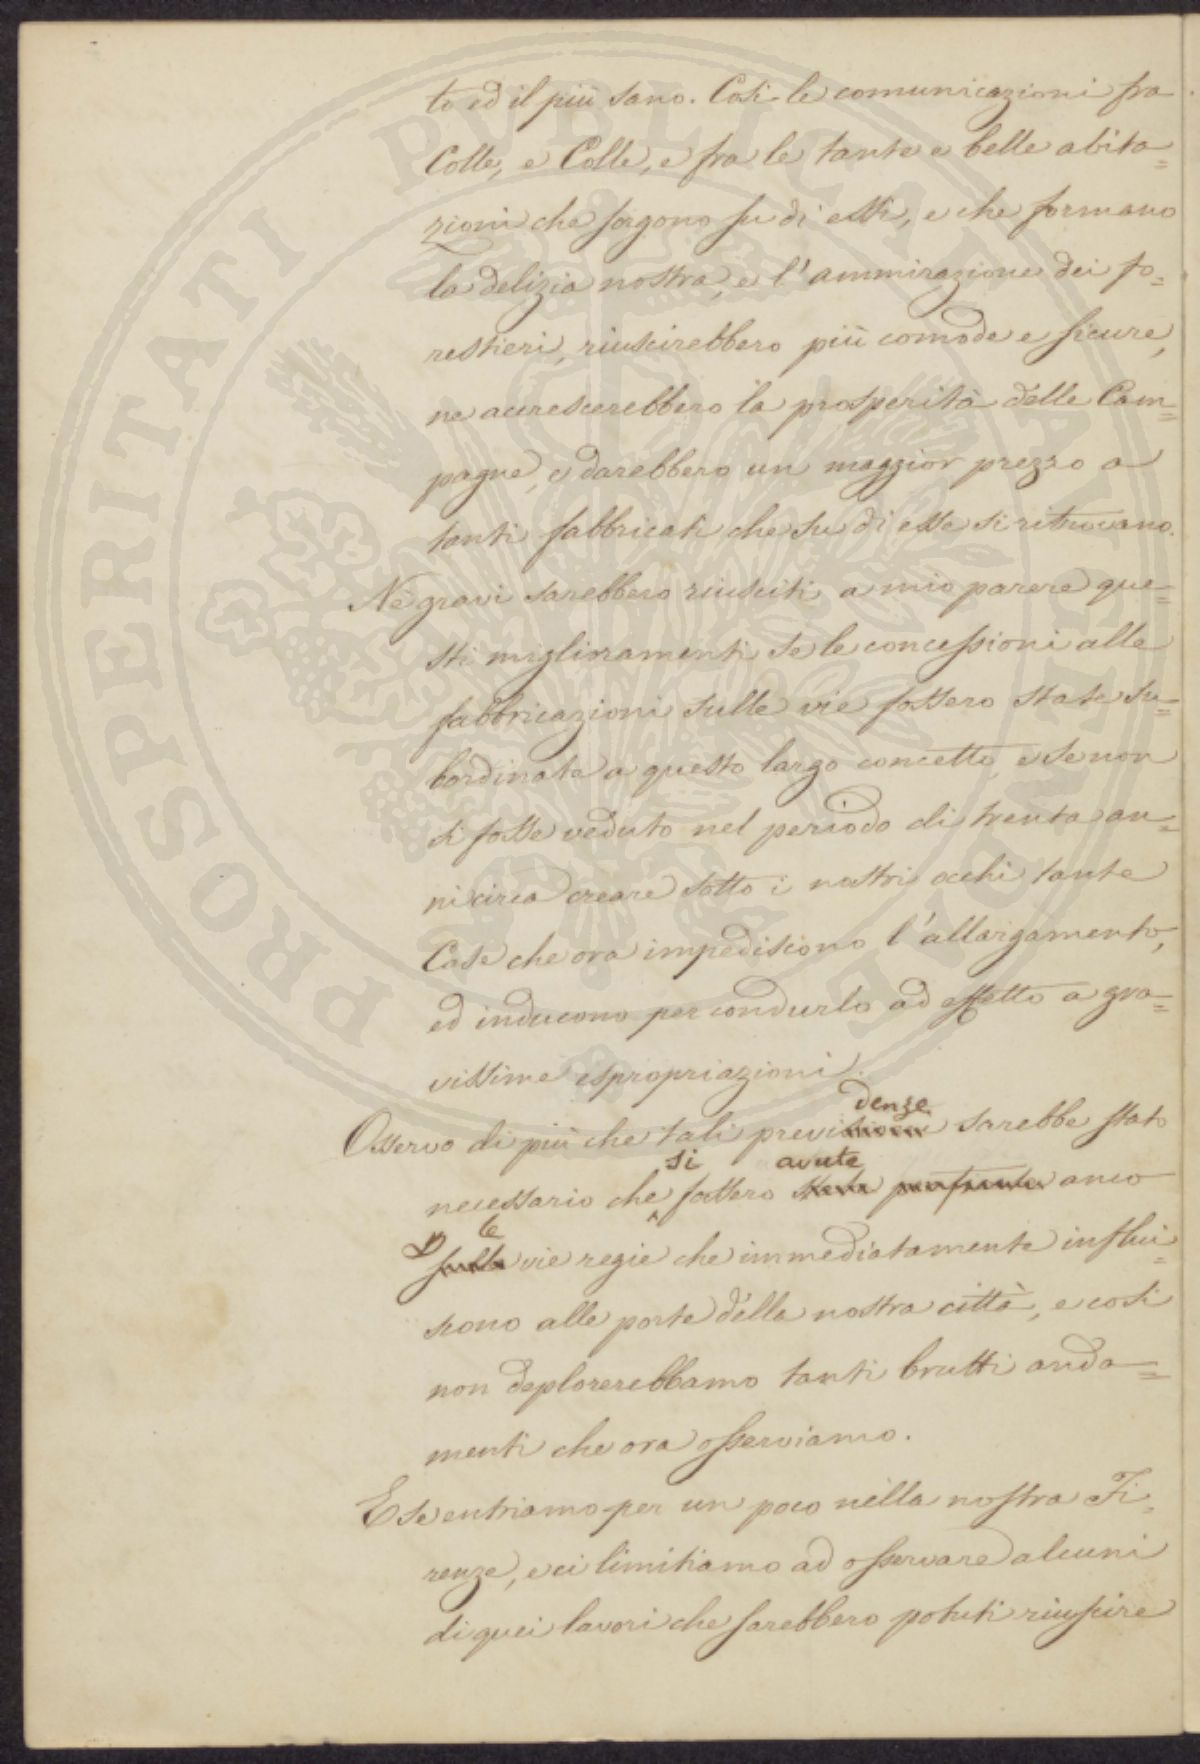 to ed il più sano. Così le comunicazioni fra
Colle, e Colle, e fra le tante e belle abita=
zioni che sorgono su di essi, e che formano
la delizia nostra, e l'ammirazione dei fo=
restieri, riuscirebbero più comode e sicure,
ne accrescerebbero la prosperità delle Cam=
pagne, e darebbero un maggior prezzo a
tanti fabbricati che su di esse si ritrovano.
Nè gravi sarebbero riusciti a mio parere que=
sti miglioramenti se le concessioni alle
fabbricazioni sulle vie fossero state su=
bordinate a questo largo concetto, e se non
si fosse veduto nel periodo di trenta an=
ni circa creare sotto i nostri occhi tante
Case che ora impediscono l'allargamento,
ed inducono per condurlo ad effetto a gra=
vissime espropriazioni.
denze
Osservo di più che tali previsioni sarebbe stato
si avute
necessario che fossero state anco
le
sulle vie regie che immediatamente influi=
scono alle porte della nostra città, e così
non deplorerebbamo tanti brutti anda=
menti che ora osserviamo.
E se entriamo per un poco nella nostra Fi=
renze, e ci limitiamo ad osservare alcuni
di quei lavori che sarebbero potuti riuscire
PROSPERITATI PUBLICAE